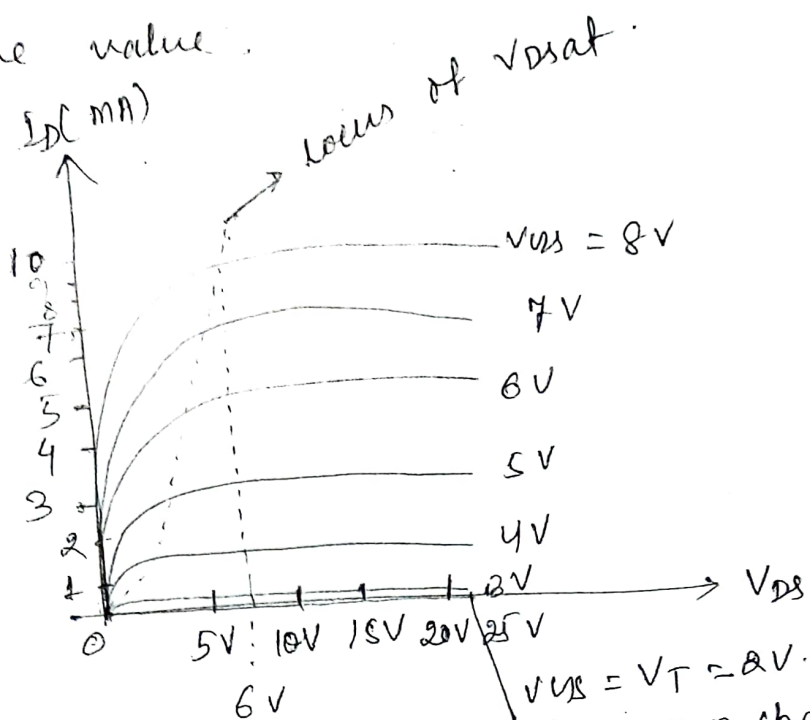 e value.
ID (mA)
locus of VDsat.
VGS = 8 V
10
9
8
7
6
5
4
3
2
1
7 V
6 V
5 V
4 V
3 V
VDS
0
5V 10V 15V 20V 25V
6 V
VGS = VT = 2V.